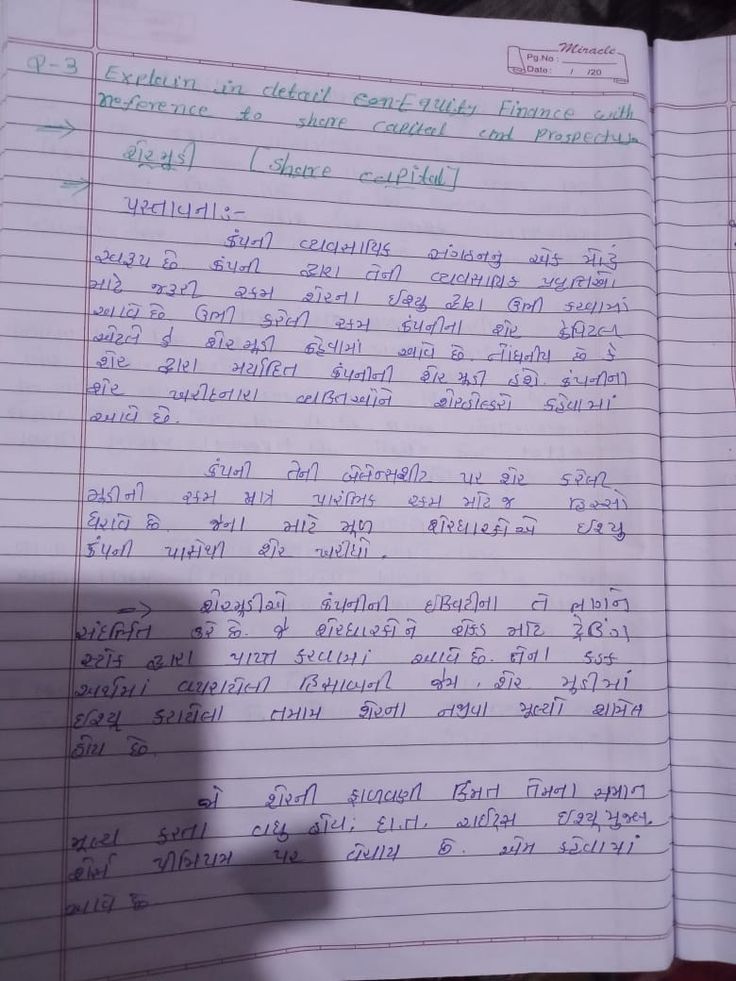 Miracle
Pg.No :
Date : / /20
Q-3 Explain in detail on Equity Finance with
reference to share capital and prospectus
શેરમૂડી [share capital]
પ્રસ્તાવના:-
કંપની વ્યવસાયિક સંગઠનનું એક મોટું
સ્વરૂપ છે કંપની દ્વારા તેની વ્યવસાયિક પ્રવૃત્તિઓ
માટે જરૂરી રકમ શેરના ઈશ્યુ દ્વારા ઉભી કરવામાં
આવે છે ઉભી કરેલી રકમ કંપનીના શેર કેપિટલ
એટલે કે શેરમૂડી કહેવામાં આવે છે. નોંધનીય છે કે
શેર દ્વારા મર્યાદિત કંપનીની શેર મૂડી હશે. કંપનીના
શેર ખરીદનારા વ્યક્તિઓને શેરહોલ્ડરો કહેવામાં
આવે છે.
કંપની તેની બેલેન્સશીટ પર શેર કરેલી
મૂડીની રકમ માત્ર પ્રારંભિક રકમ માટે જ હિસ્સો
ધરાવે છે. જેના માટે મૂળ શેરધારકોએ ઈશ્યુ
કંપની પાસેથી શેર ખરીદ્યો.
⇒ શેરમૂડીએ કંપનીની ઈક્વિટીના તે ભાગને
સંદર્ભિત કરે છે. જે શેરધારકોને રોકડ માટે ટ્રેડિંગ
સ્ટોક દ્વારા પ્રાપ્ત કરવામાં આવે છે. તેના કડક
અર્થમાં વપરાયેલી હિસાબની જેમ, શેર મૂડીમાં
ઈશ્યૂ કરાયેલા તમામ શેરના નજીવા મૂલ્યો શામેલ
હોય છે.
જો શેરની ફાળવણી કિંમત તેમના સમાન
મૂલ્ય કરતા વધુ હોય; દા.ત. રાઈટ્સ ઈશ્યૂ મુજબ,
શેર્સ પ્રીમિયમ પર વેચાય છે. એમ કહેવામાં
આવે છે